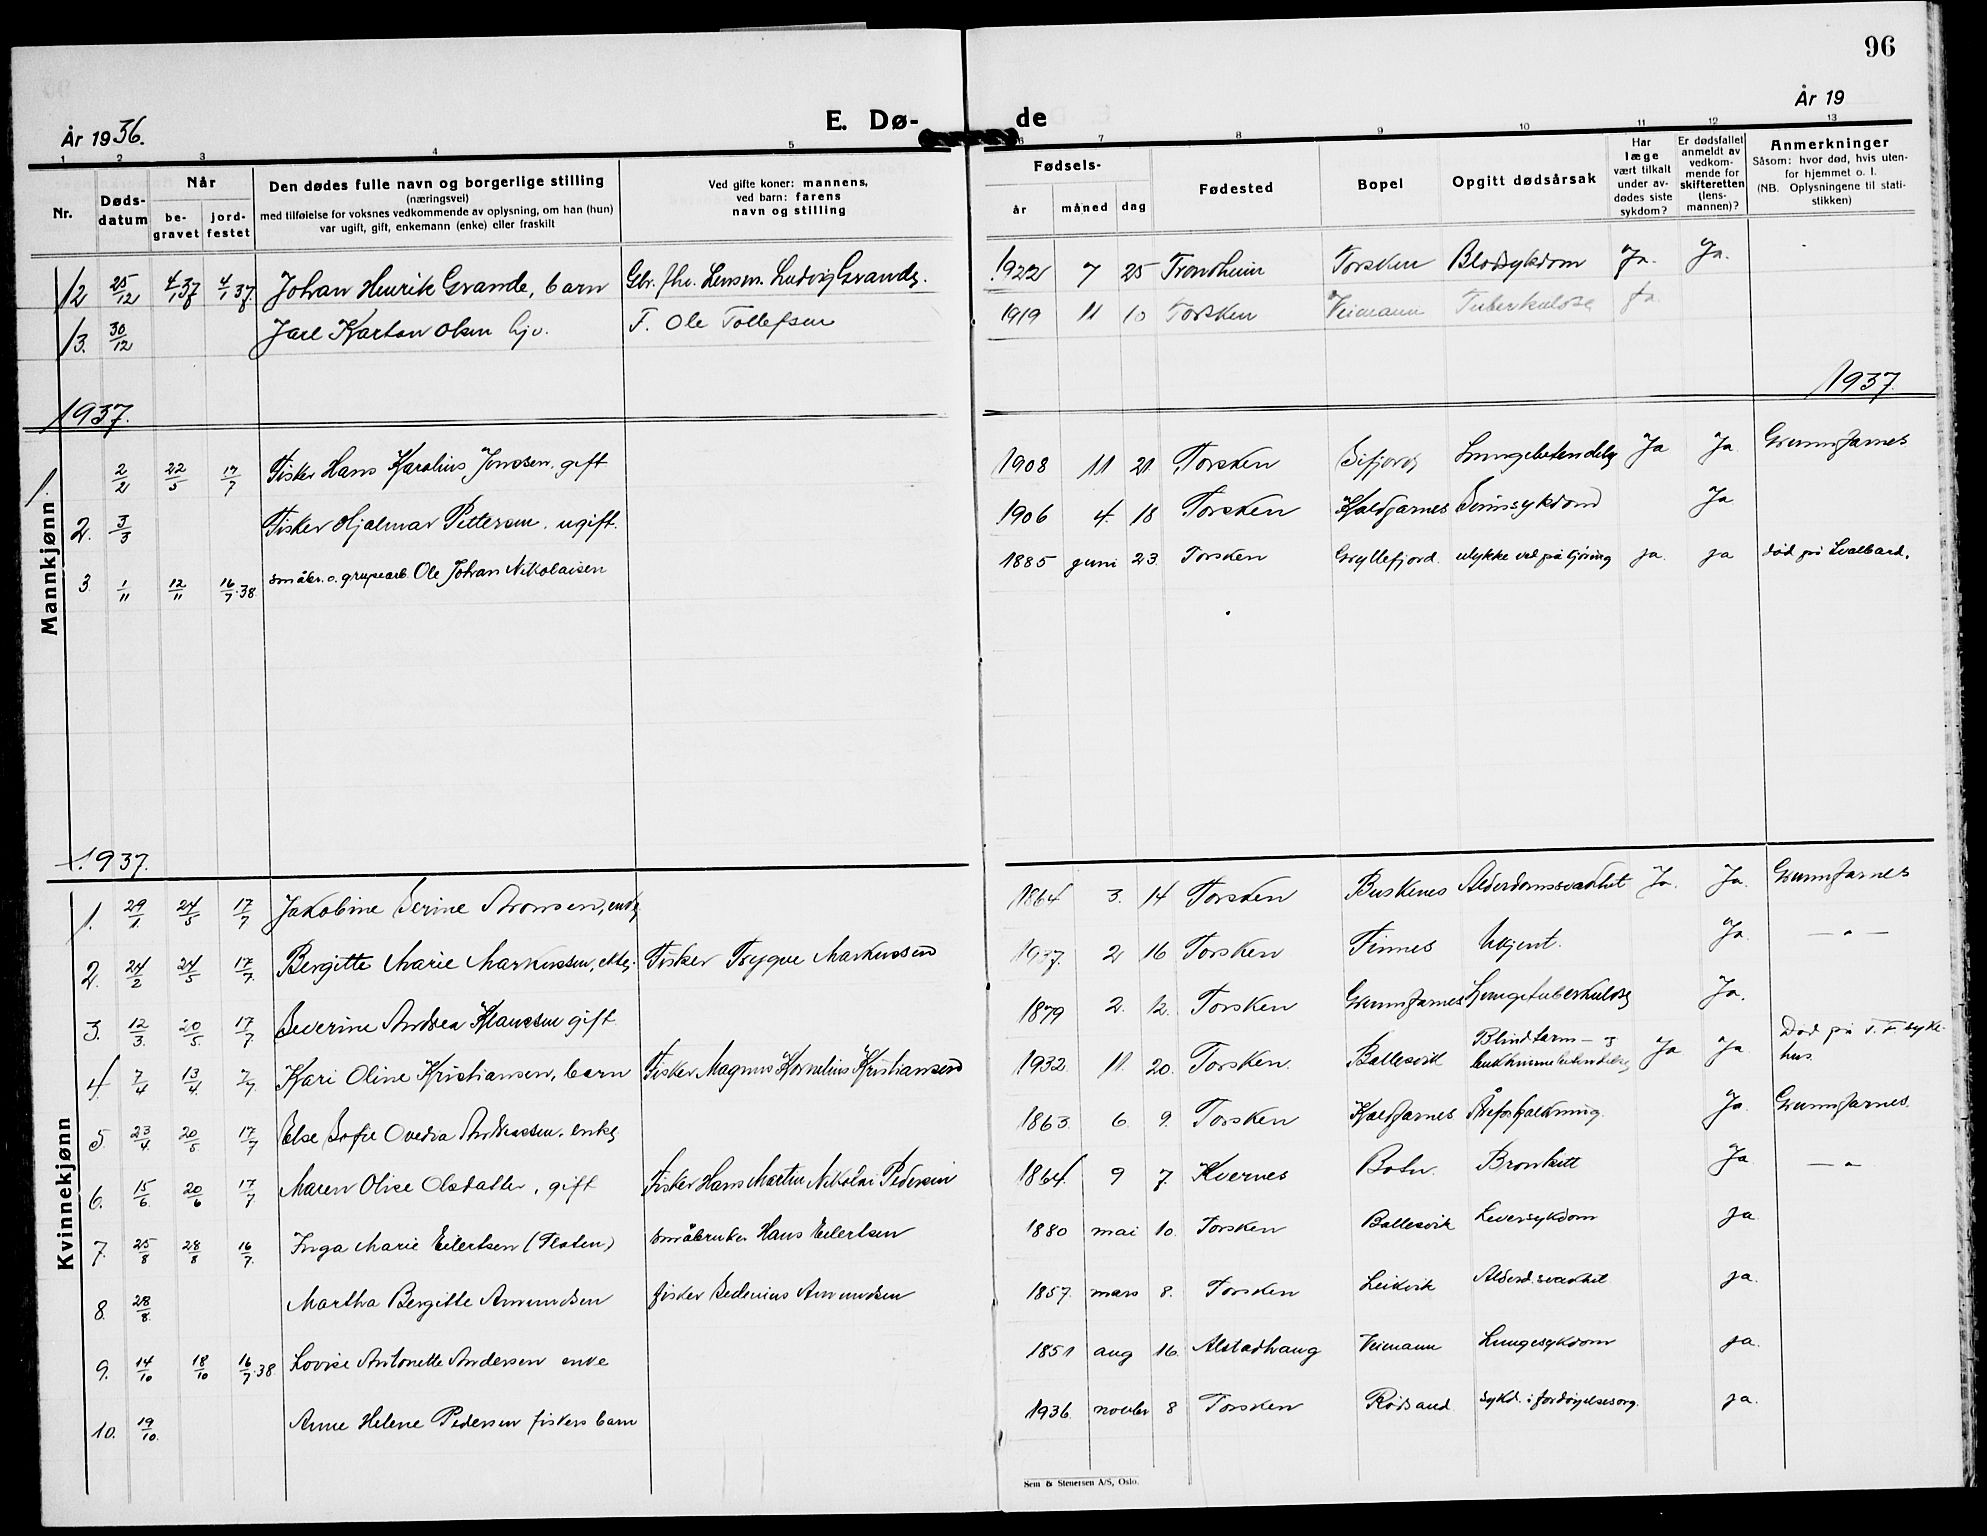 96
År 1936.
E. Dø-
de
År 19
1 2 3 4 5 6 7 8 9 10 11 12 13
Nr.
Døds-
datum
Når
be-
gravet
jord-
festet
Den dødes fulle navn og borgerlige stilling
(næringsvei)
med tilføielse for voksnes vedkommende av oplysning, om han (hun)
var ugift, gift, enkemann (enke) eller fraskilt
Ved gifte koner: mannens,
ved barn: farens
navn og stilling
Fødsels-
år måned dag
Fødested
Bopel
Opgitt dødsårsak
Har
læge
vært tilkalt
under av-
dødes siste
sykdom?
Er dødsfallet
anmeldt av
vedkom-
mende for
skifteretten
(lens-
mannen)?
Anmerkninger
Såsom: hvor død, hvis uten-
for hjemmet o. l.
(NB. Oplysningene til stati-
stikken)
12 25/12 4/1 37 4/1 37. Johan Henrik Grande, barn Gbr. fhv. Lensm. Ludvig Grande. 1922 7 25 Trondheim Torsken Blodsykdom Ja. Ja.
13. 30/12 Jarl Karton Olsen hjv. F. Ole Tollefsen 1919 11 10 Torsken Veimann Tuberkulose Ja
1937.
1937.
Mannkjønn
1. 2/2 22/5 17/7 Fisker Hans Karolius Jonssen, gift 1908 11 21. Torsken Sifjord Lungebetendelse Ja Ja. Grunnfarnes
2. 3/3 Fisker Hjalmar Pettersen, ugift. 1906 4. 18 Torsken Kaldfarnes Sinnsykdom Ja
3 1/11 12/11 16/7.38. småbr. o. grupearb. Ole Johan Nikolaisen 1885 juni 23. Torsken Gryllefjord. ulykke ved på kjöring ja. ja død på Svalbard.
1937.
Kvinnekjønn
1. 29/1. 24/5 17/7 Jakobine Serine Aronsen, enke 1864 3. 14 Torsken Buskenes Alderdomssvakhet Ja. Ja. Grunnfarnes
2. 24/2 24/5 17/7. Bergitte Marie Markussen, ekte. Fisker Trygve Markussen 1937. 2 16 Torsken Finnes Ukjent. Ja — " —
3. 12/3. 20/5. 17/7 Severine Andrea Klaussen gift 1879 2. 12. Torsken Grunnfarnes Lungetuberkulose Ja.
4. 7/4 13/4. 7/7. Kari Oline Kristiansen, barn Fisker Magnus Kornelius Kristiansen 1932. 11. 20. Torsken. Ballesvik Blindtarm- og
bukhinnebetendelse Ja Ja Død på T. F. syke-
hus.
5. 23/4. 20/5. 17/7 Else Sofie Ovedia Andreassen, enke 1863. 6. 9. Torsken Kaldfarnes Åreforkalkning. Ja. Grunnfarnes.
6. 15/6. 20/6 17/7 Maren Olise Olsdatter, gift Fisker Hans Martin Nikolai Pedersen 1864. 9 7. Kvernes Botn. Bronkitt Ja — " —
7. 25/8 28/8 16/7. Inga Marie Eilertsen (Flaten) småbruker Hans Eilertsen 1880 mai 10. Torsken Ballesvik Leversykdom ja.
8. 28/8. Martha Bergitte Amundsen fisker Sedenius Amundsen 1857. mars 8. Torsken Leikvik Alderd.svakhet. ja.
9. 14/10 18/10 16/7.38. Lovise Antonette Andersen enke 1851 aug 16. Alstadhaug Veimann Lungesykdom ja.
10. 19/10. Anne Helene Pedersen fiskers barn 1936. novbr 8 Torsken Rödsand sykd. i fordöyelsesorg. ja.
Sem & Stenersen A/S, Oslo.